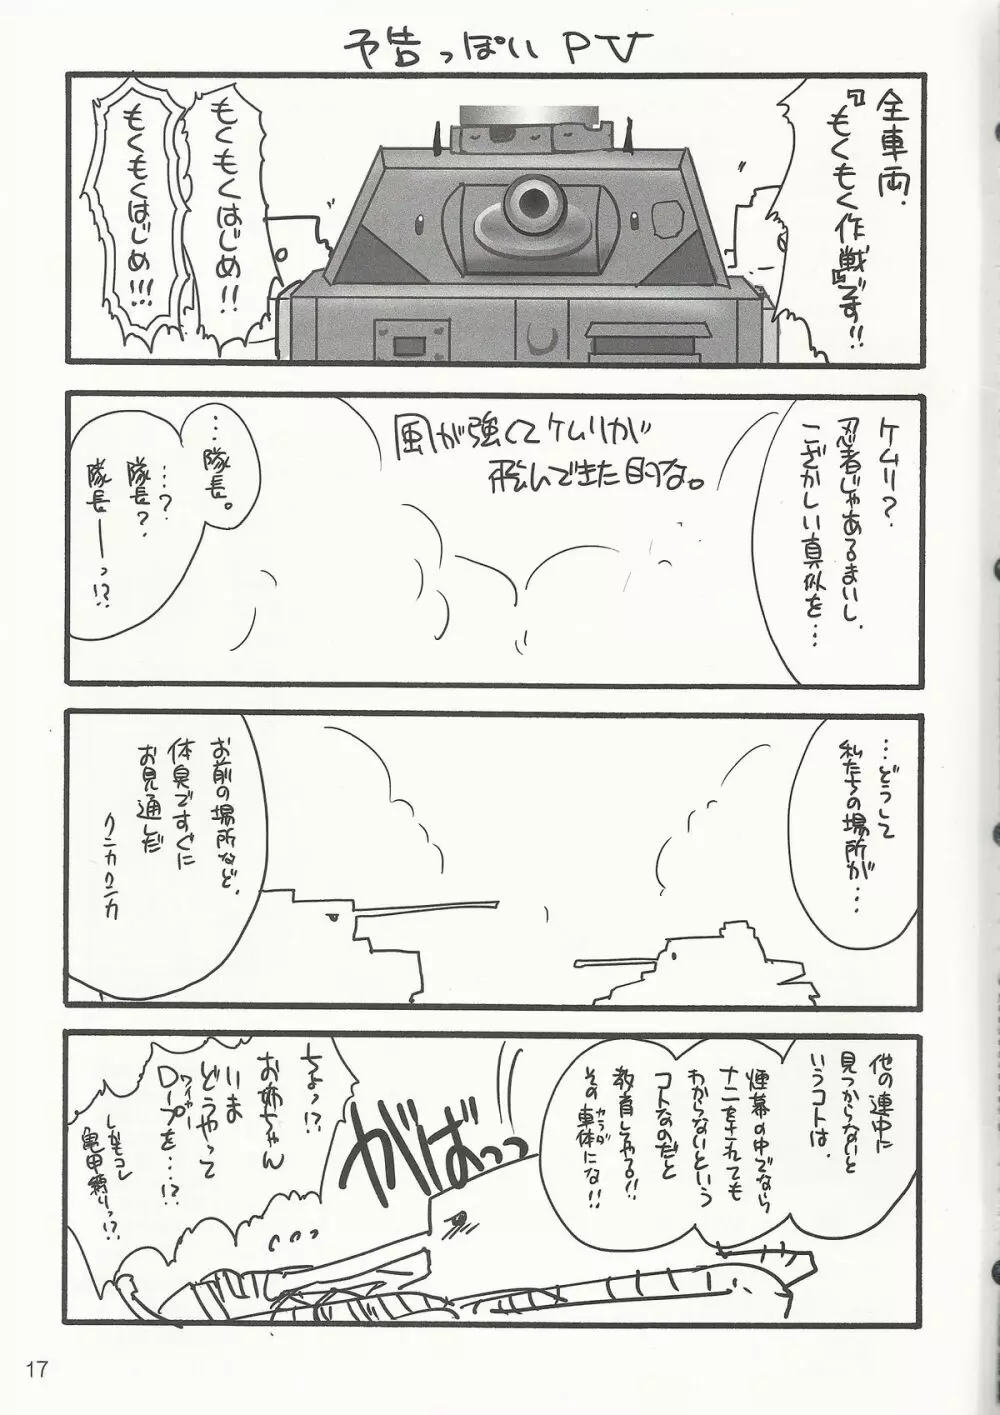 予告っぽいPV
全車両、
『もくもく作戦』です!!
もくもくはじめ!!
もくもくはじめ!!!
ケムリ?
忍者じゃあるまいし、
こざかしい真似を…
風が強くてケムリが
飛んできた的な。
…隊長。
…?
隊長?
隊長ーっ!?
…どうして
私たちの場所が…
お前の場所など、
体臭ですぐに
お見通しだ
クンカクンカ
他の連中に
見つからないと
いうコトは、
煙幕の中でなら
ナニをされても
わからないという
コトなのだと
教育してやる!!
その車体にな!!
カラダ
がばっっ
ちょっ!?
お姉ちゃん
いま
どうやって
ワイヤー
ロープを…!?
しかもコレ
亀甲縛りっ!?
17